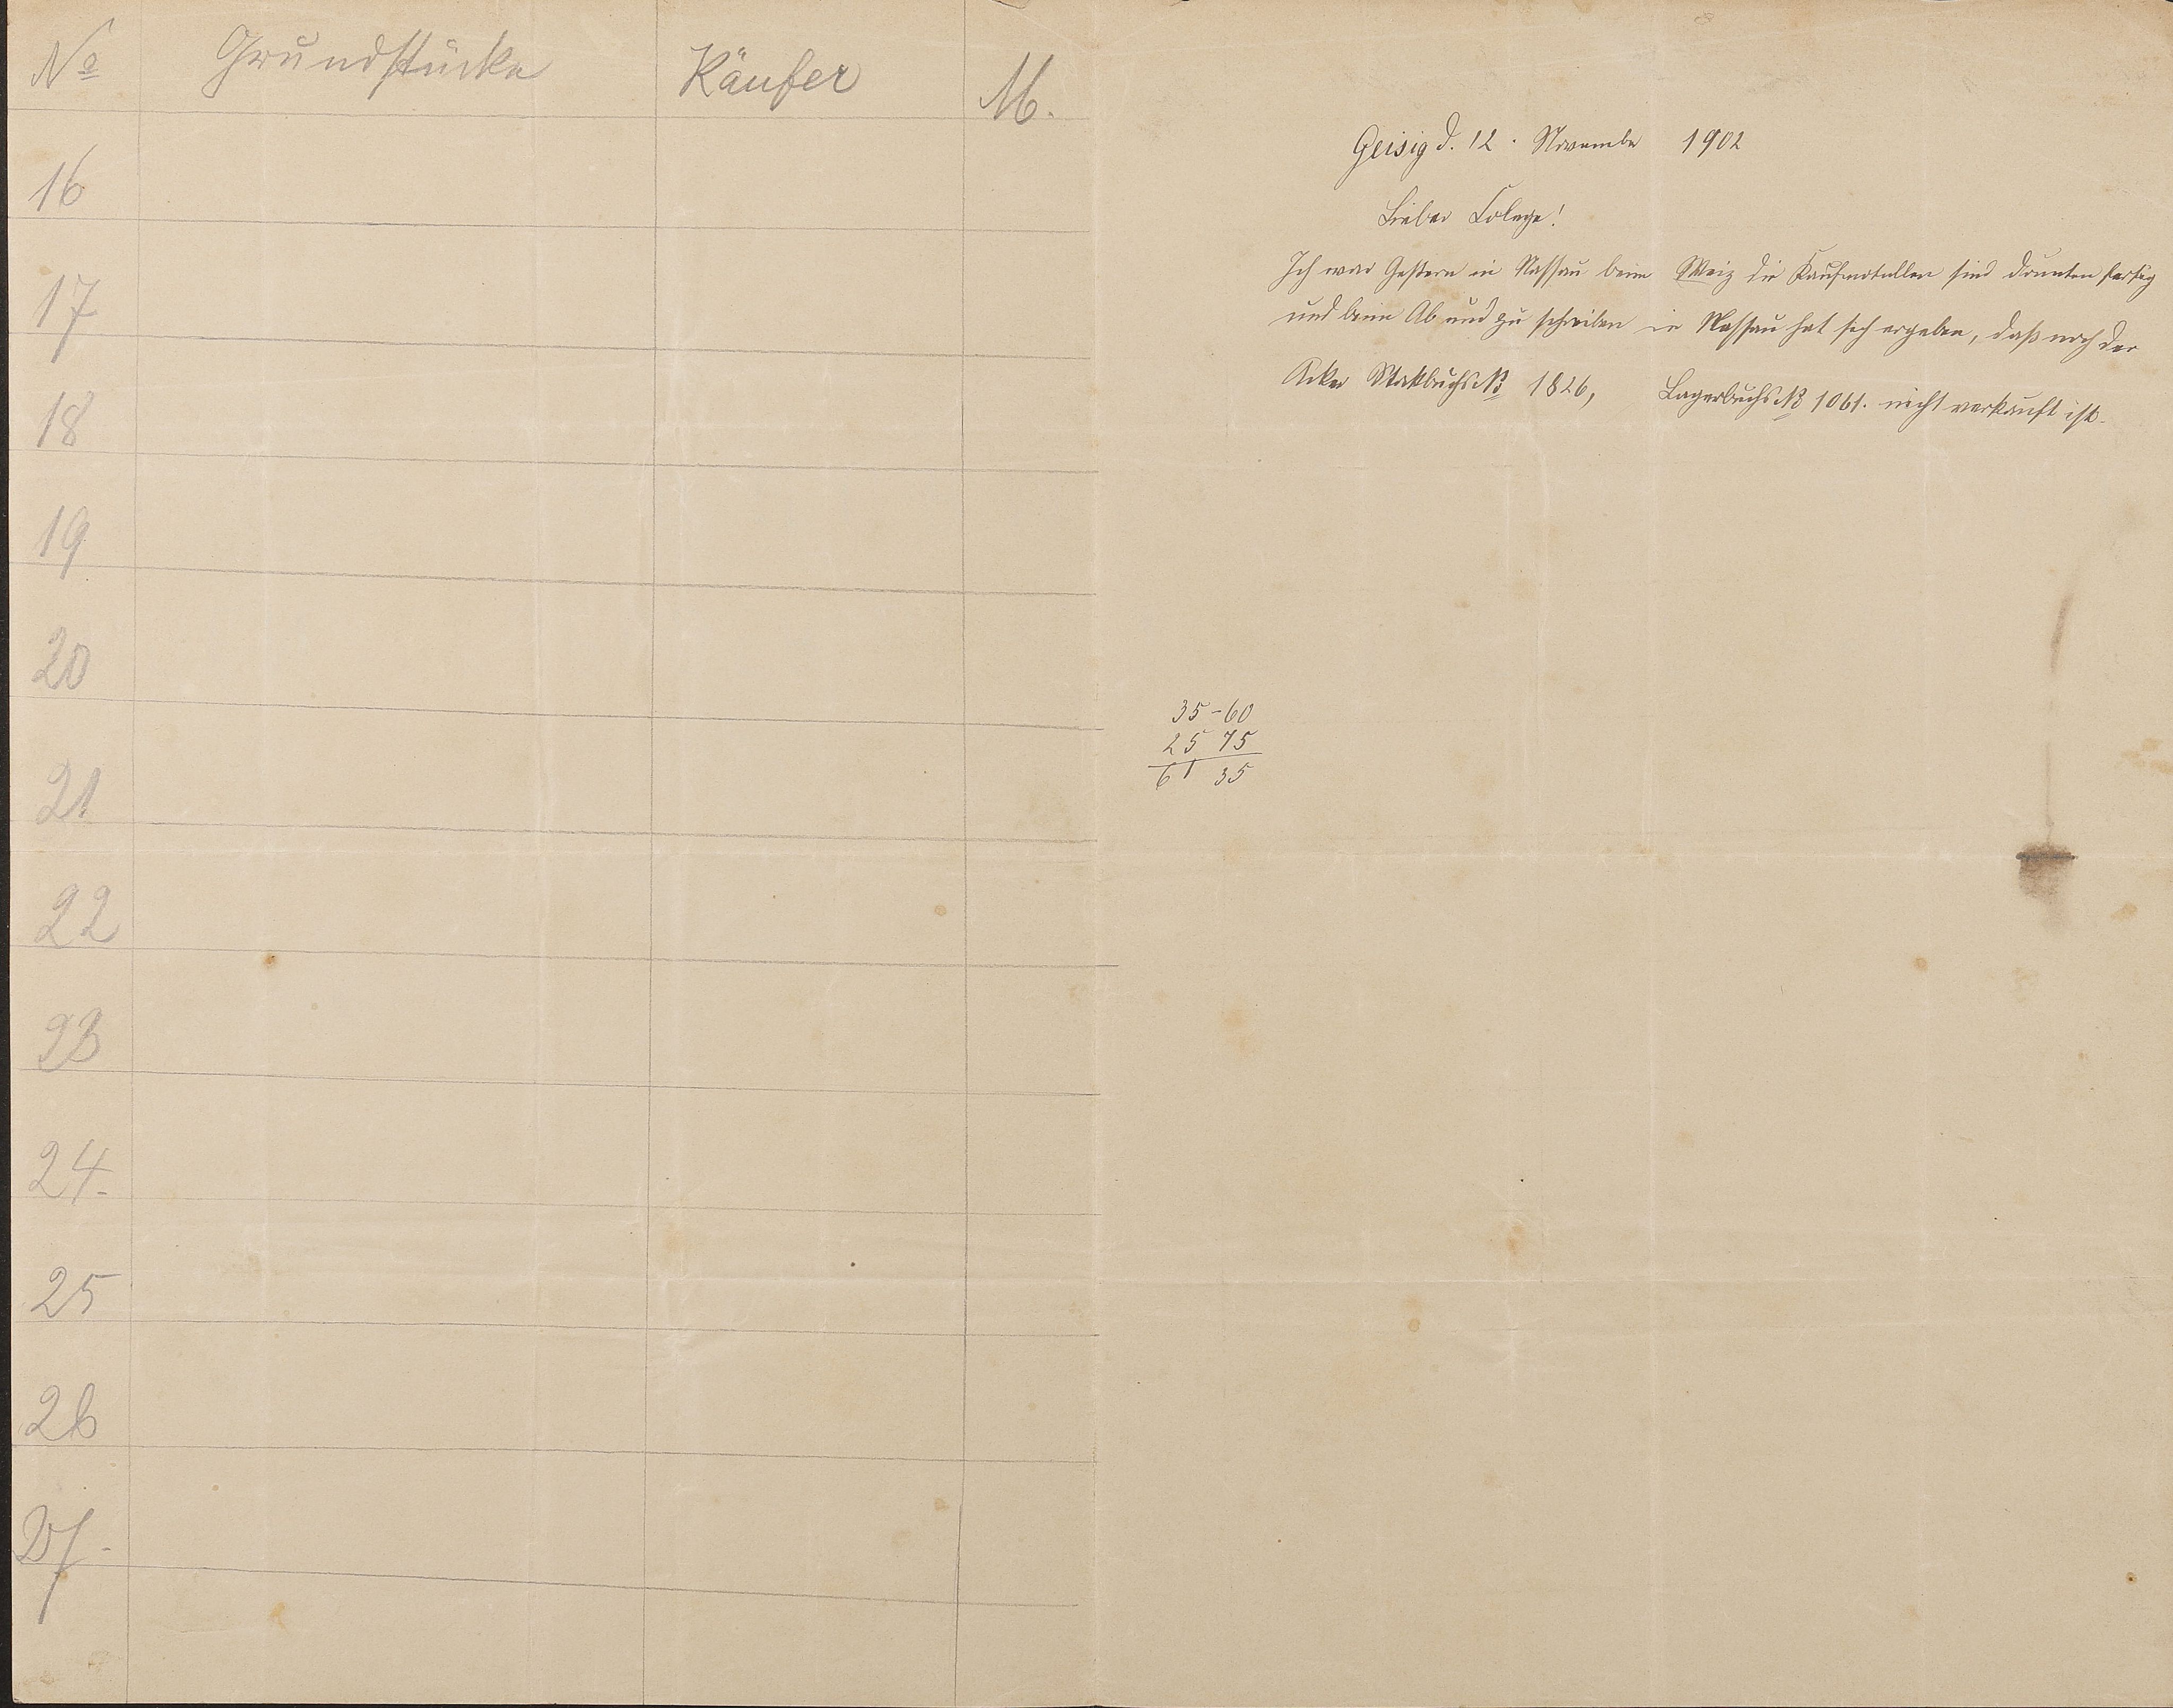 No Grundstücke Käufer M.
16
17
18
19
20
21
22
23
24.
25
26
27.
Geisig d. 12. November 1902
Lieber Colege!
Ich war Gestern in Nassau beim die sind drunten fertig
und beim Ab und zu schreiben in Nassau hat sich ergeben, daß noch der
Acker Stokbuchs No 1826, Lagerbuchs No 1061. nicht verkauft ist.
35-60
25 75
61 35